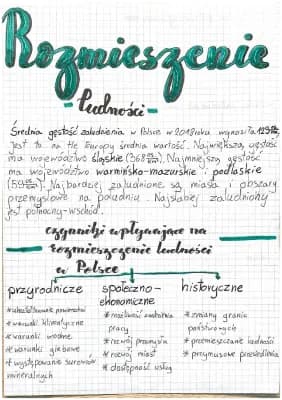 Rozmieszczenie
- ludności -
Średnia gęstość zaludnienia w Polsce w 2018 roku wynosiła 123 os/km².
Jest to na tle Europy średnia wartość. Największą gęstość
ma województwo śląskie (368 os/km²). Najmniejszą gęstość
ma województwo warmińsko-mazurskie i podlaskie
(59 os/km²). Najbardziej zaludnione są miasta i obszary
przemysłowe na południu. Najsłabiej zaludniony
jest północny-wschód.
czynniki wpływające na
rozmieszczenie ludności
w Polsce
przyrodnicze
* ukształtowanie powierzchni
* warunki klimatyczne
* warunki wodne
* warunki glebowe
* występowanie surowców
mineralnych
społeczno-
ekonomiczne
* możliwość znalezienia
pracy
* rozwój przemysłu
* rozwój miast
* dostępność usług
historyczne
* zmiany granic
państwowych
* przemieszczanie ludności
* przymusowe przesiedlenia